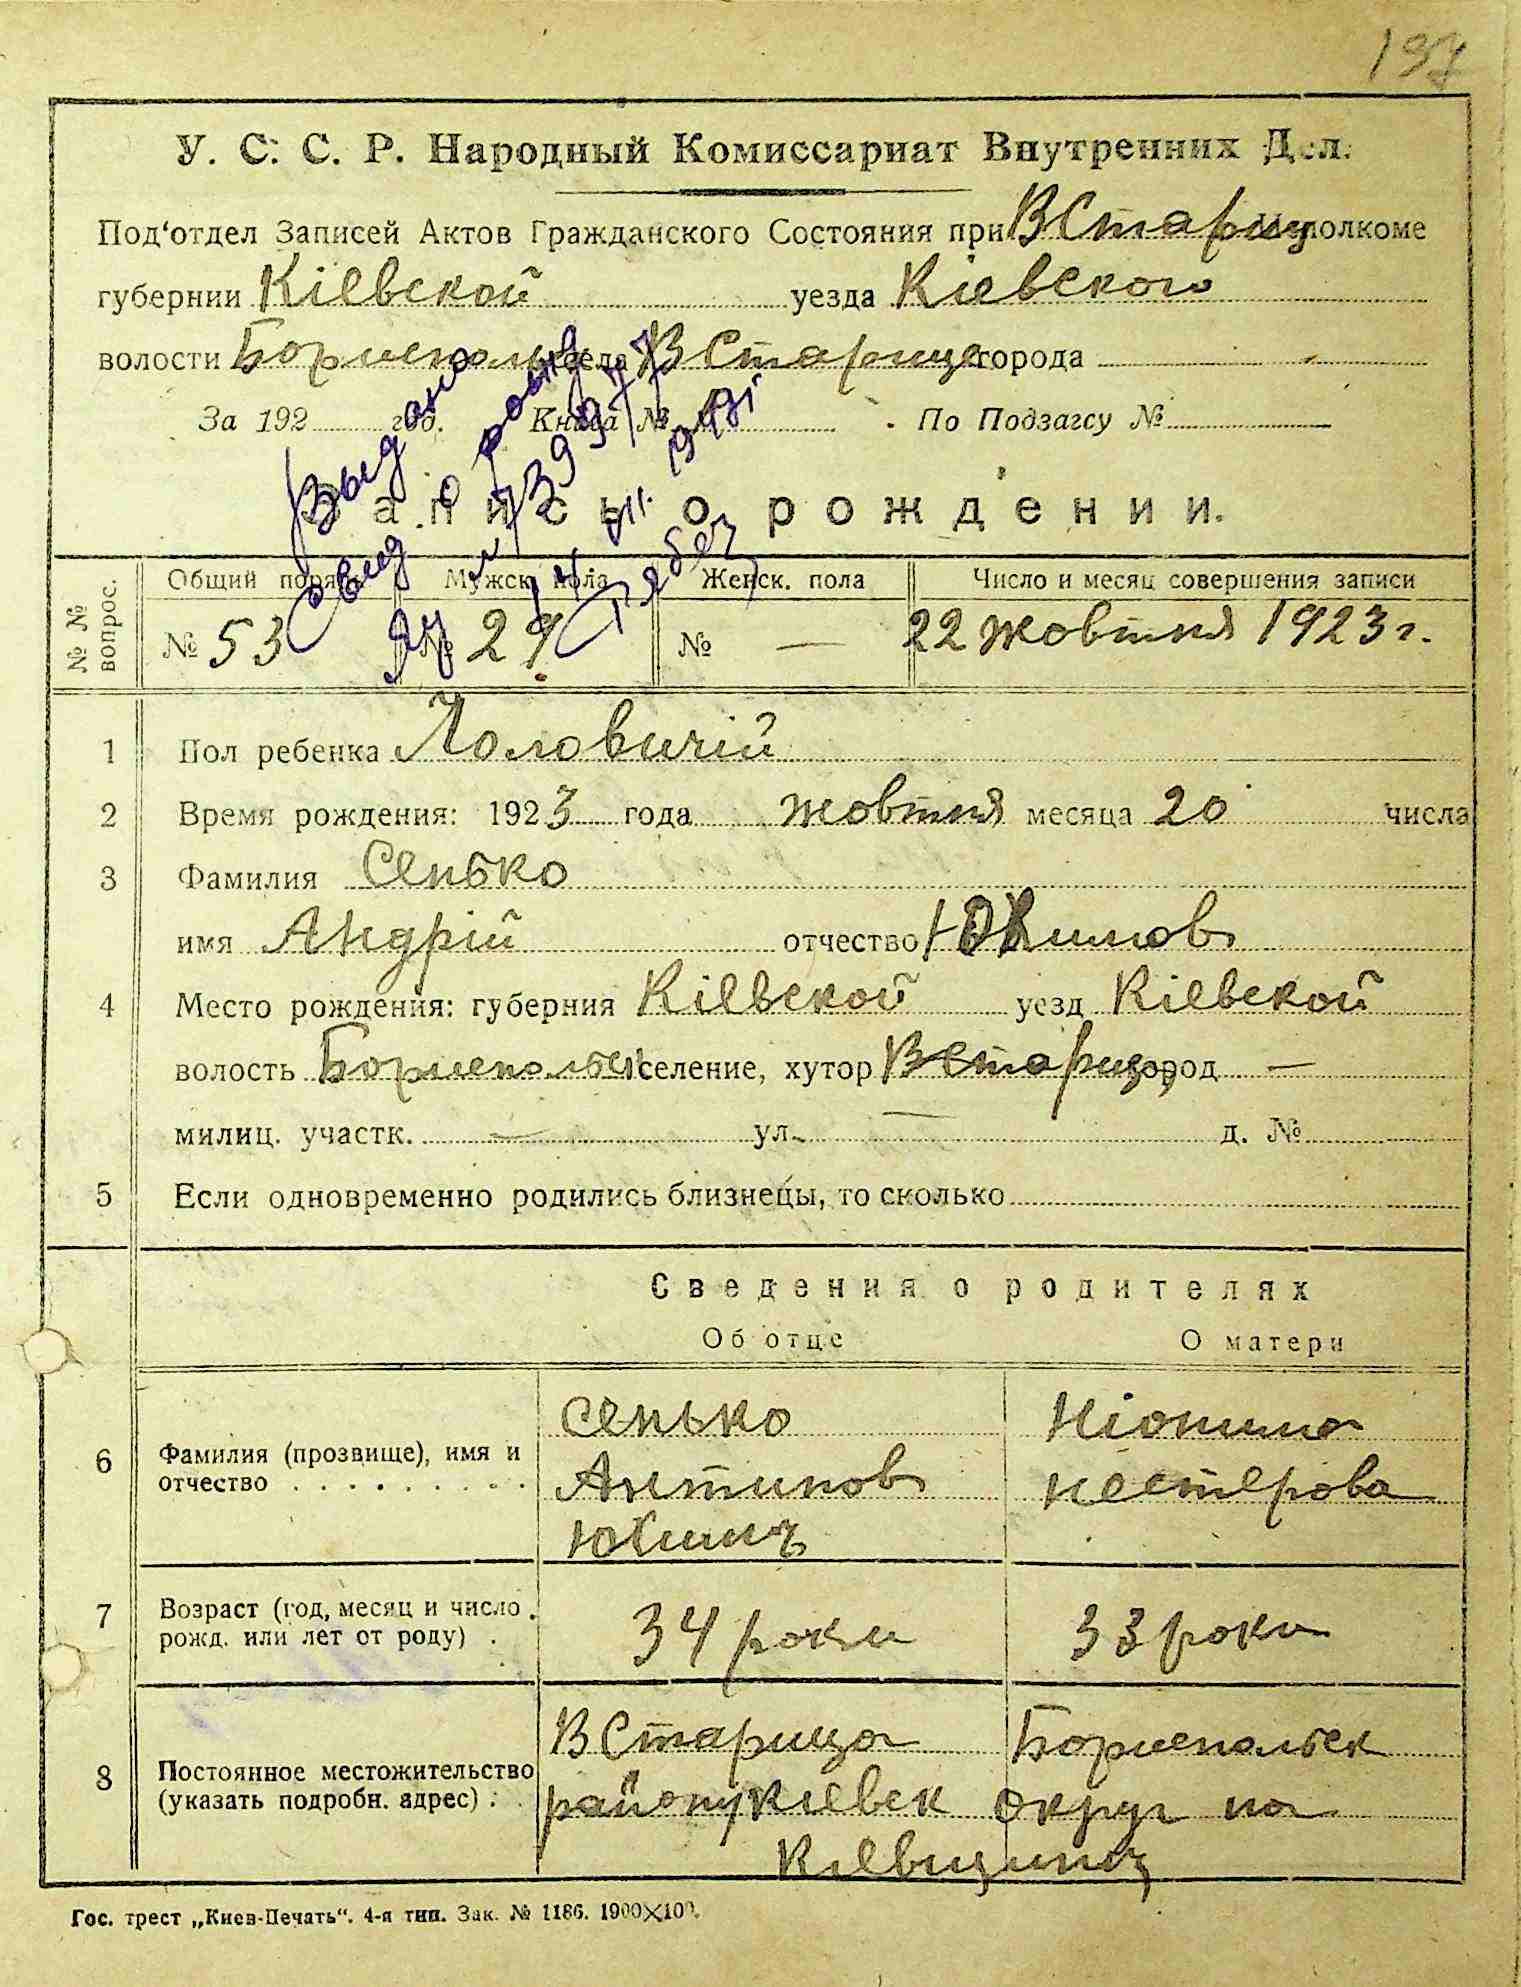 197
У. С. С. Р. Народный Комиссариат Внутренних Дел.
Под'отдел Записей Актов Гражданского Состояния при ВСтариц Исполкоме
губернии Кіевской уезда Кіевского
волости Бориспольс села ВСтарице города -
За 192 год. Книга № По Подзагсу №
Выдано
свид о рожд
Запись о рождении.
№ № вопрос.
Общий поряд. Мужск. пола Женск. пола Число и месяц совершения записи
№ 53 № 29 № — 22 жовтня 1923 г.
1 Пол ребенка Чоловичій
2 Время рождения: 1923 года жовтня месяца 20 числа
3 Фамилия Сенько
имя Андрій отчество Юхимов
4 Место рождения: губерния Кіевской уезд Кіевской
волость Бориспольск селение, хутор ВСтарица город —
милиц. участк. — ул. — д. №
5 Если одновременно родились близнецы, то сколько
Сведения о родителях
Об отце О матери
6 Фамилия (прозвище), имя и отчество
Сенько Ніонила
Антипов Нестерова
Юхимъ
7 Возраст (год, месяц и число рожд. или лет от роду)
34 роки 33 роки
8 Постоянное местожительство (указать подробн. адрес)
ВСтарица Бориспольск
району Кіевск округ на
Кіевщину
Гос. трест „Киев-Печать“. 4-я тип. Зак. № 1186. 1900×100.